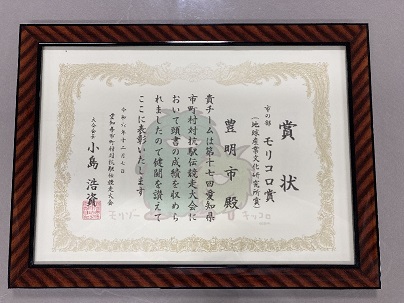 賞状
市の部
モリコロ賞
(地球産業文化研究所賞)
豊明市殿
貴チームは第十七回愛知県
市町村対抗駅伝競走大会に
おいて頭書の成績を収めら
れましたので健闘を讃えて
ここに表彰いたします
愛知県市町村対抗駅伝競走大会
大会会長 小島浩資
モリゾー
キッコロ